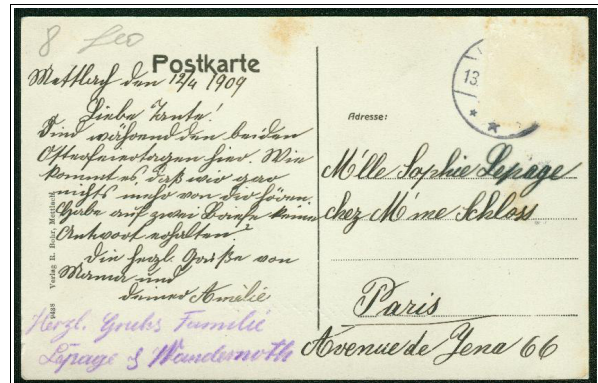 8 Leo
Postkarte
Mettlach den 12/4 1909
Liebe Tante!
Sind während den beiden
Osterfeiertagen hier. Wie
kommt es, daß wir gar
nichts mehr von dir hören.
Habe auf zwei Briefe keine
Antwort erhalten?
Die herzl. Grüße von
Mama und
deiner Amélie
Herzl. Gruss Familie
Lepage & Wandernoth
Verlag R. Bohr, Mettlach
Adresse:
13.
M'lle Sophie Lepage
chez M'me Schloss
Paris
Avenue de Jena 66